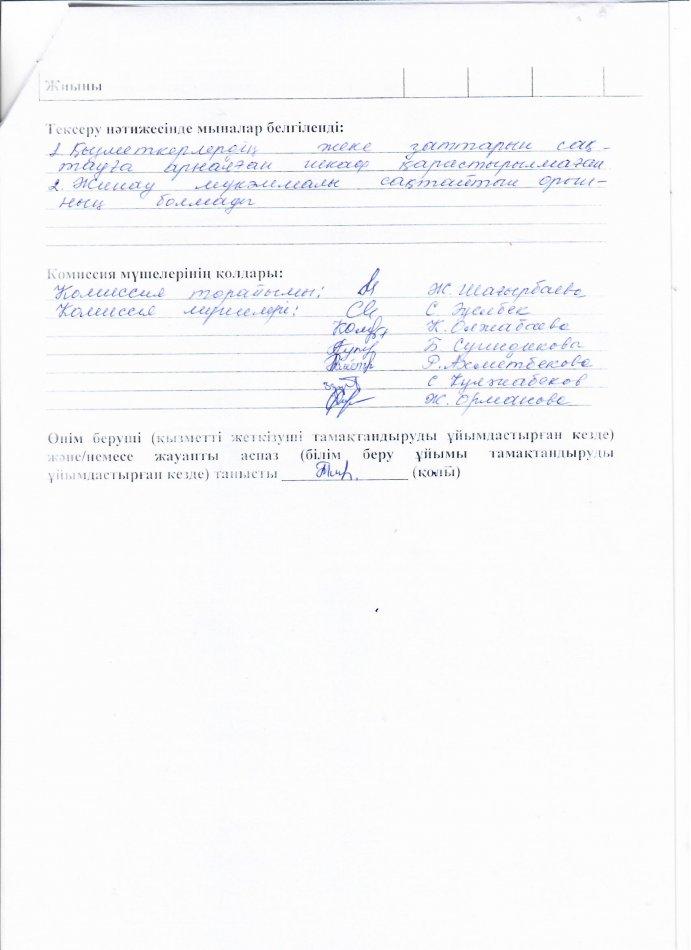 Жиыны
Тексеру нәтижесінде мыналар белгіленді:
1. Қызметкерлердің жеке заттарын сақ-
тауға арналған шкаф қарастырылмаған
2. Жинау мүкәммалы сақтайтын орын-
ның болмады
Комиссия мүшелерінің қолдары:
Комиссия төрайымы: Ж. Шағырбаева
Комиссия мүшелері: С.
К. Олжабаева
Б.
Р. Ахметбекова
С. Құлжабеков
Ж. Орманова
Өнім беруші (қызметті жеткізуші тамақтандыруды ұйымдастырған кезде)
және/немесе жауапты аспаз (білім беру ұйымы тамақтандыруды
ұйымдастырған кезде) танысты ____________ (қолы)